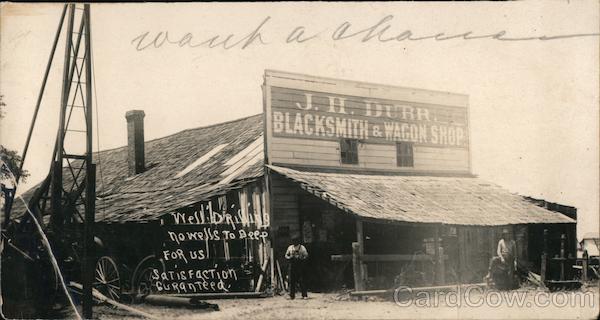 want a chance
J. H. DURR.
BLACKSMITH & WAGON SHOP.
Well Drilling
No wells To Deep
FOR US
Satisfaction
Guranteed.
CardCow.com